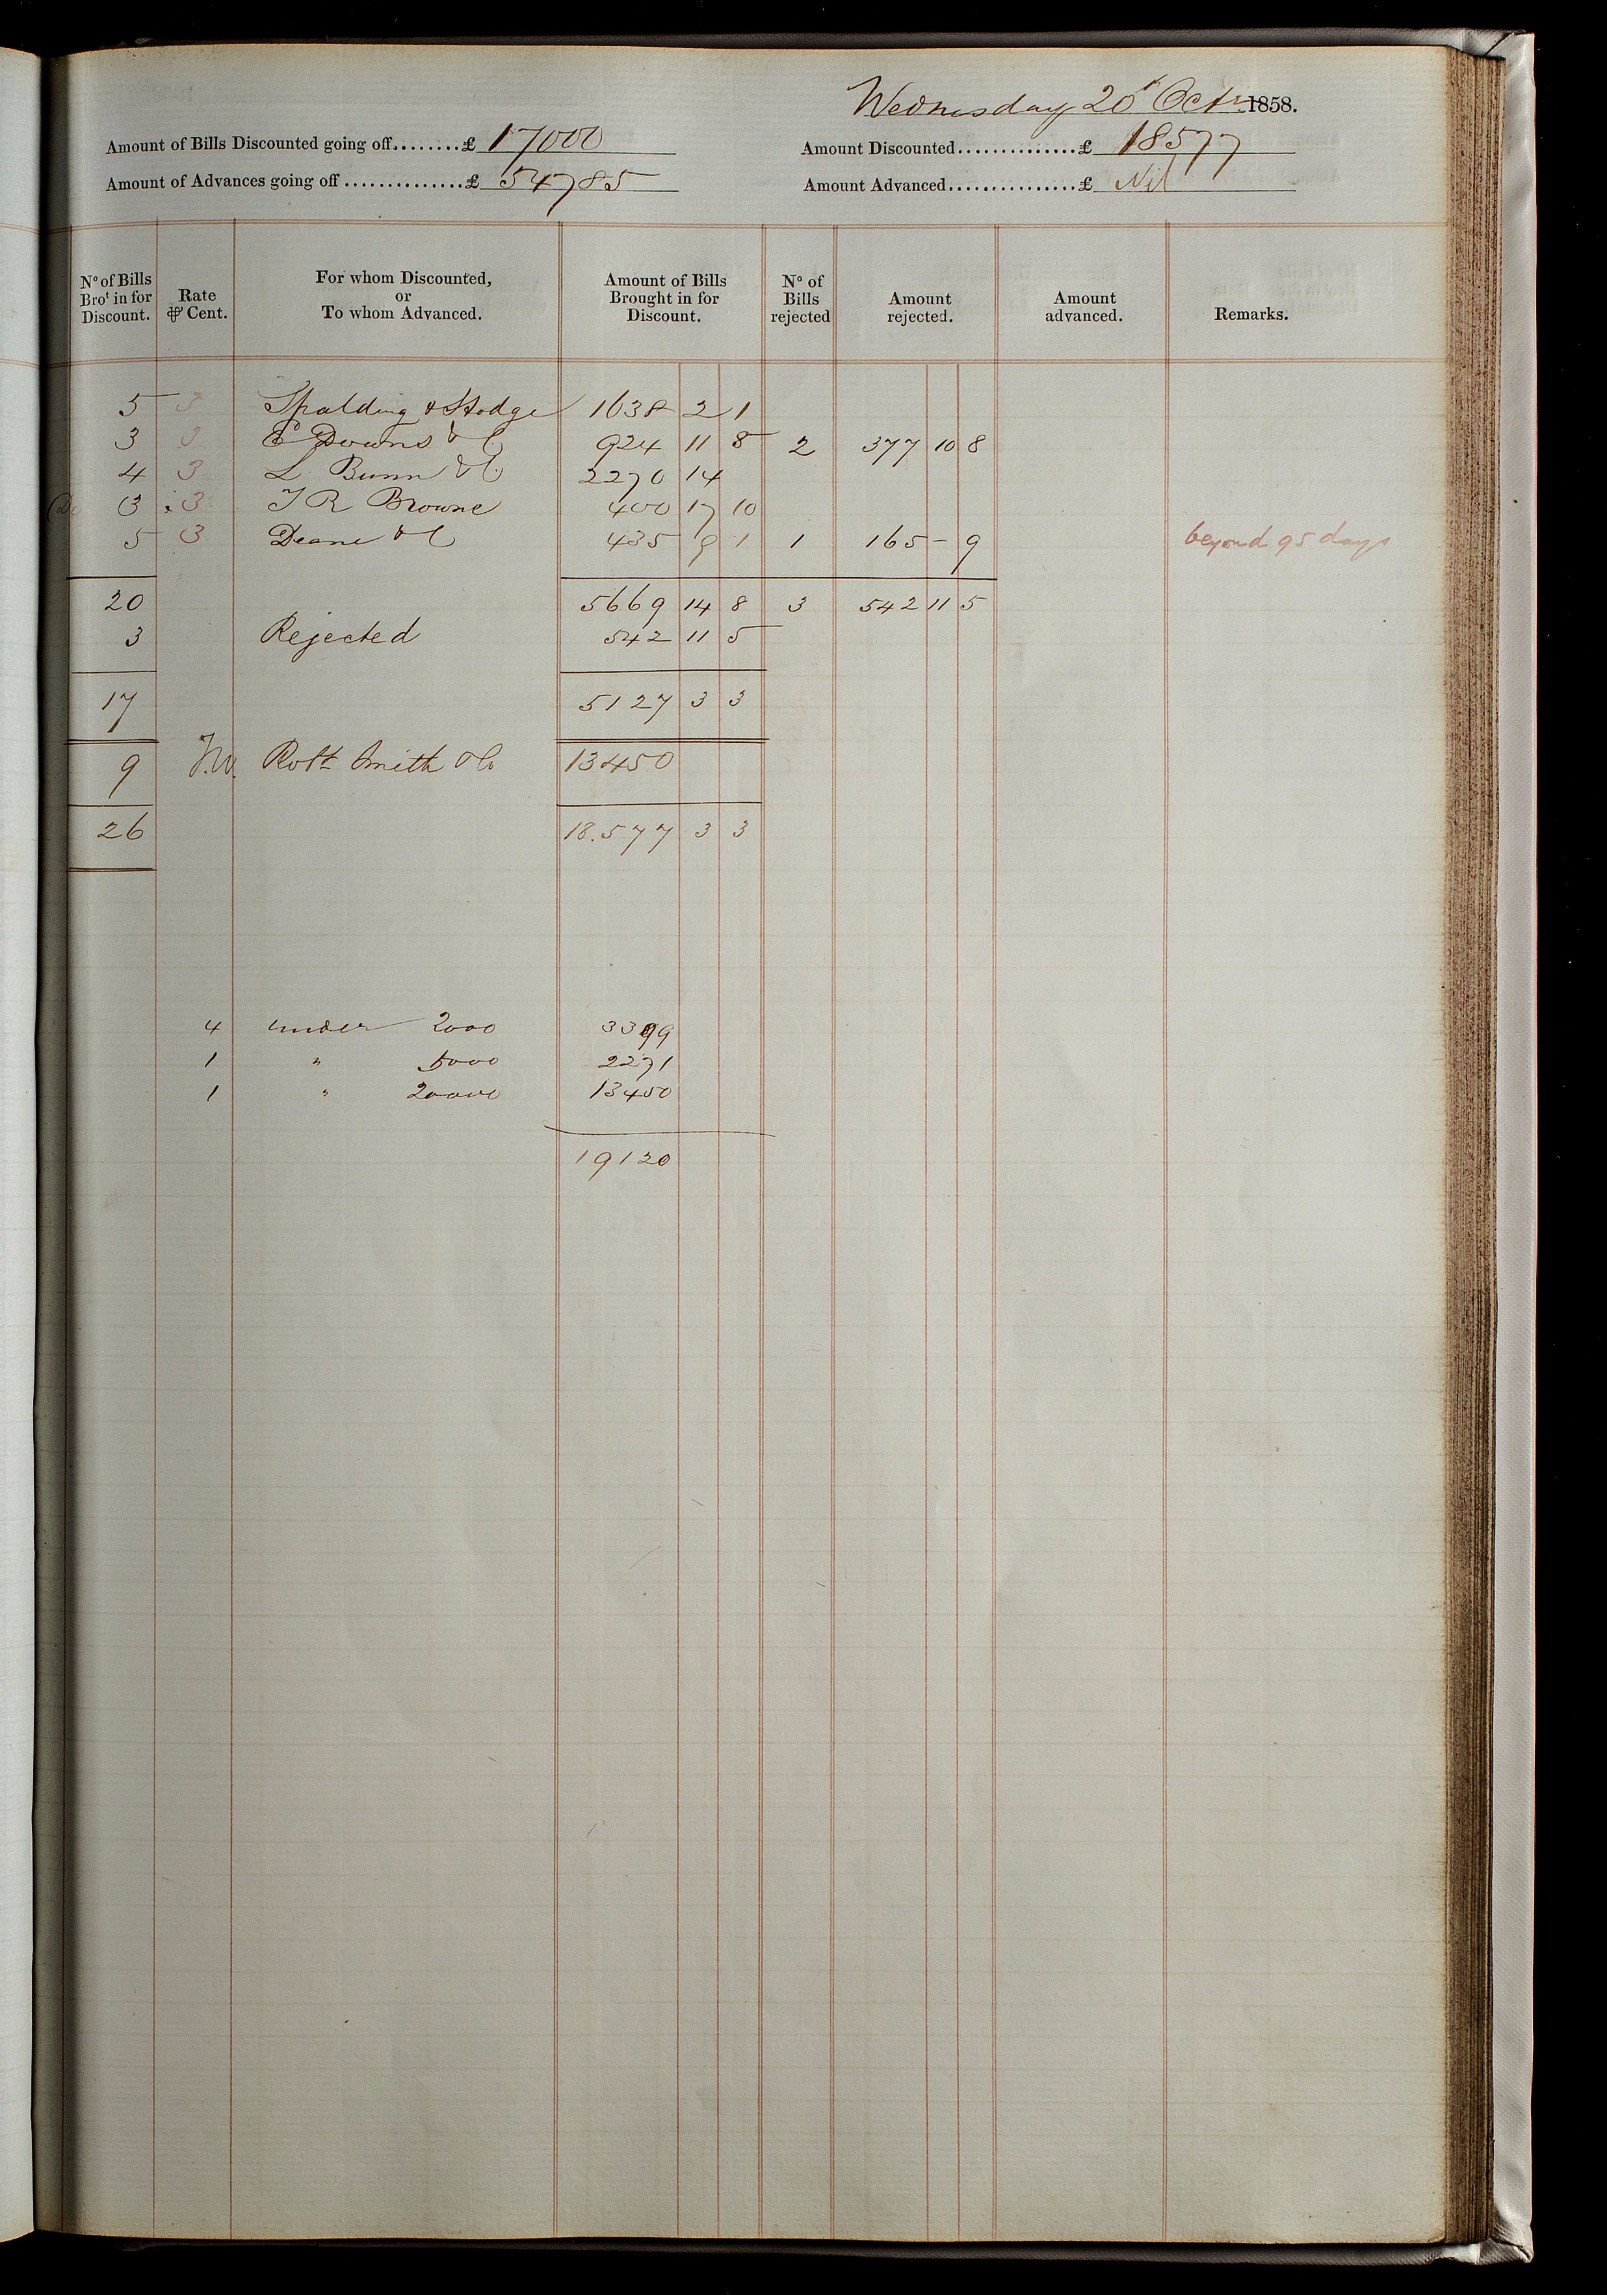 Wednesday 20 Octr 1858.
Amount of Bills Discounted going off........£ 17000
Amount Discounted..............£ 18577
Amount of Advances going off..............£ 54785
Amount Advanced...............£ Nil
No of Bills Brot in for Discount. Rate ⅌ Cent. For whom Discounted, or To whom Advanced. Amount of Bills Brought in for Discount. No of Bills rejected Amount rejected. Amount advanced. Remarks.
5 3 Spalding & Hodge 1638 2 1
3 3 E Downs & C 924 11 8 2 377 10 8
4 3 L Bunn & C 2270 14
3 3 T R Browne 400 17 10
5 3 Deane & C 435 9 1 1 165 - 9 beyond 95 days
20 5669 14 8 3 542 11 5
3 Rejected 542 11 5
17 5127 3 3
9 Robt Smith & Co 13450
26 18.577 3 3
4 under 2000 3399
1 " 5000 2271
1 " 20000 13450
19120